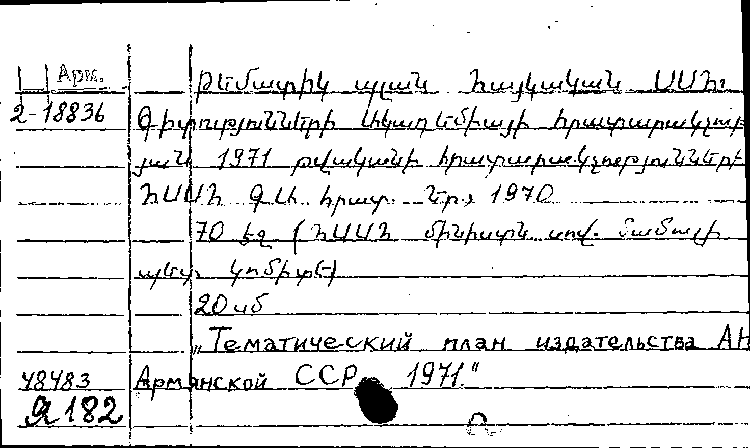 Арм.
Թեմատիկ պլան Հայկական ՍՍՀ
2-18836 Գիտությունների Ակադեմիայի հրատարակչութ
յան 1971 թվականի հրատարակչությունների
ՀՍՍՀ ԳԱ հրատ. Եր., 1970
70 էջ (ՀՍՍՀ մինիստն սով. մամուլի
պետ. կոմիտե)
20 սմ
„Тематический план издательства АН
48483 Армянской ССР 1971"
Я182